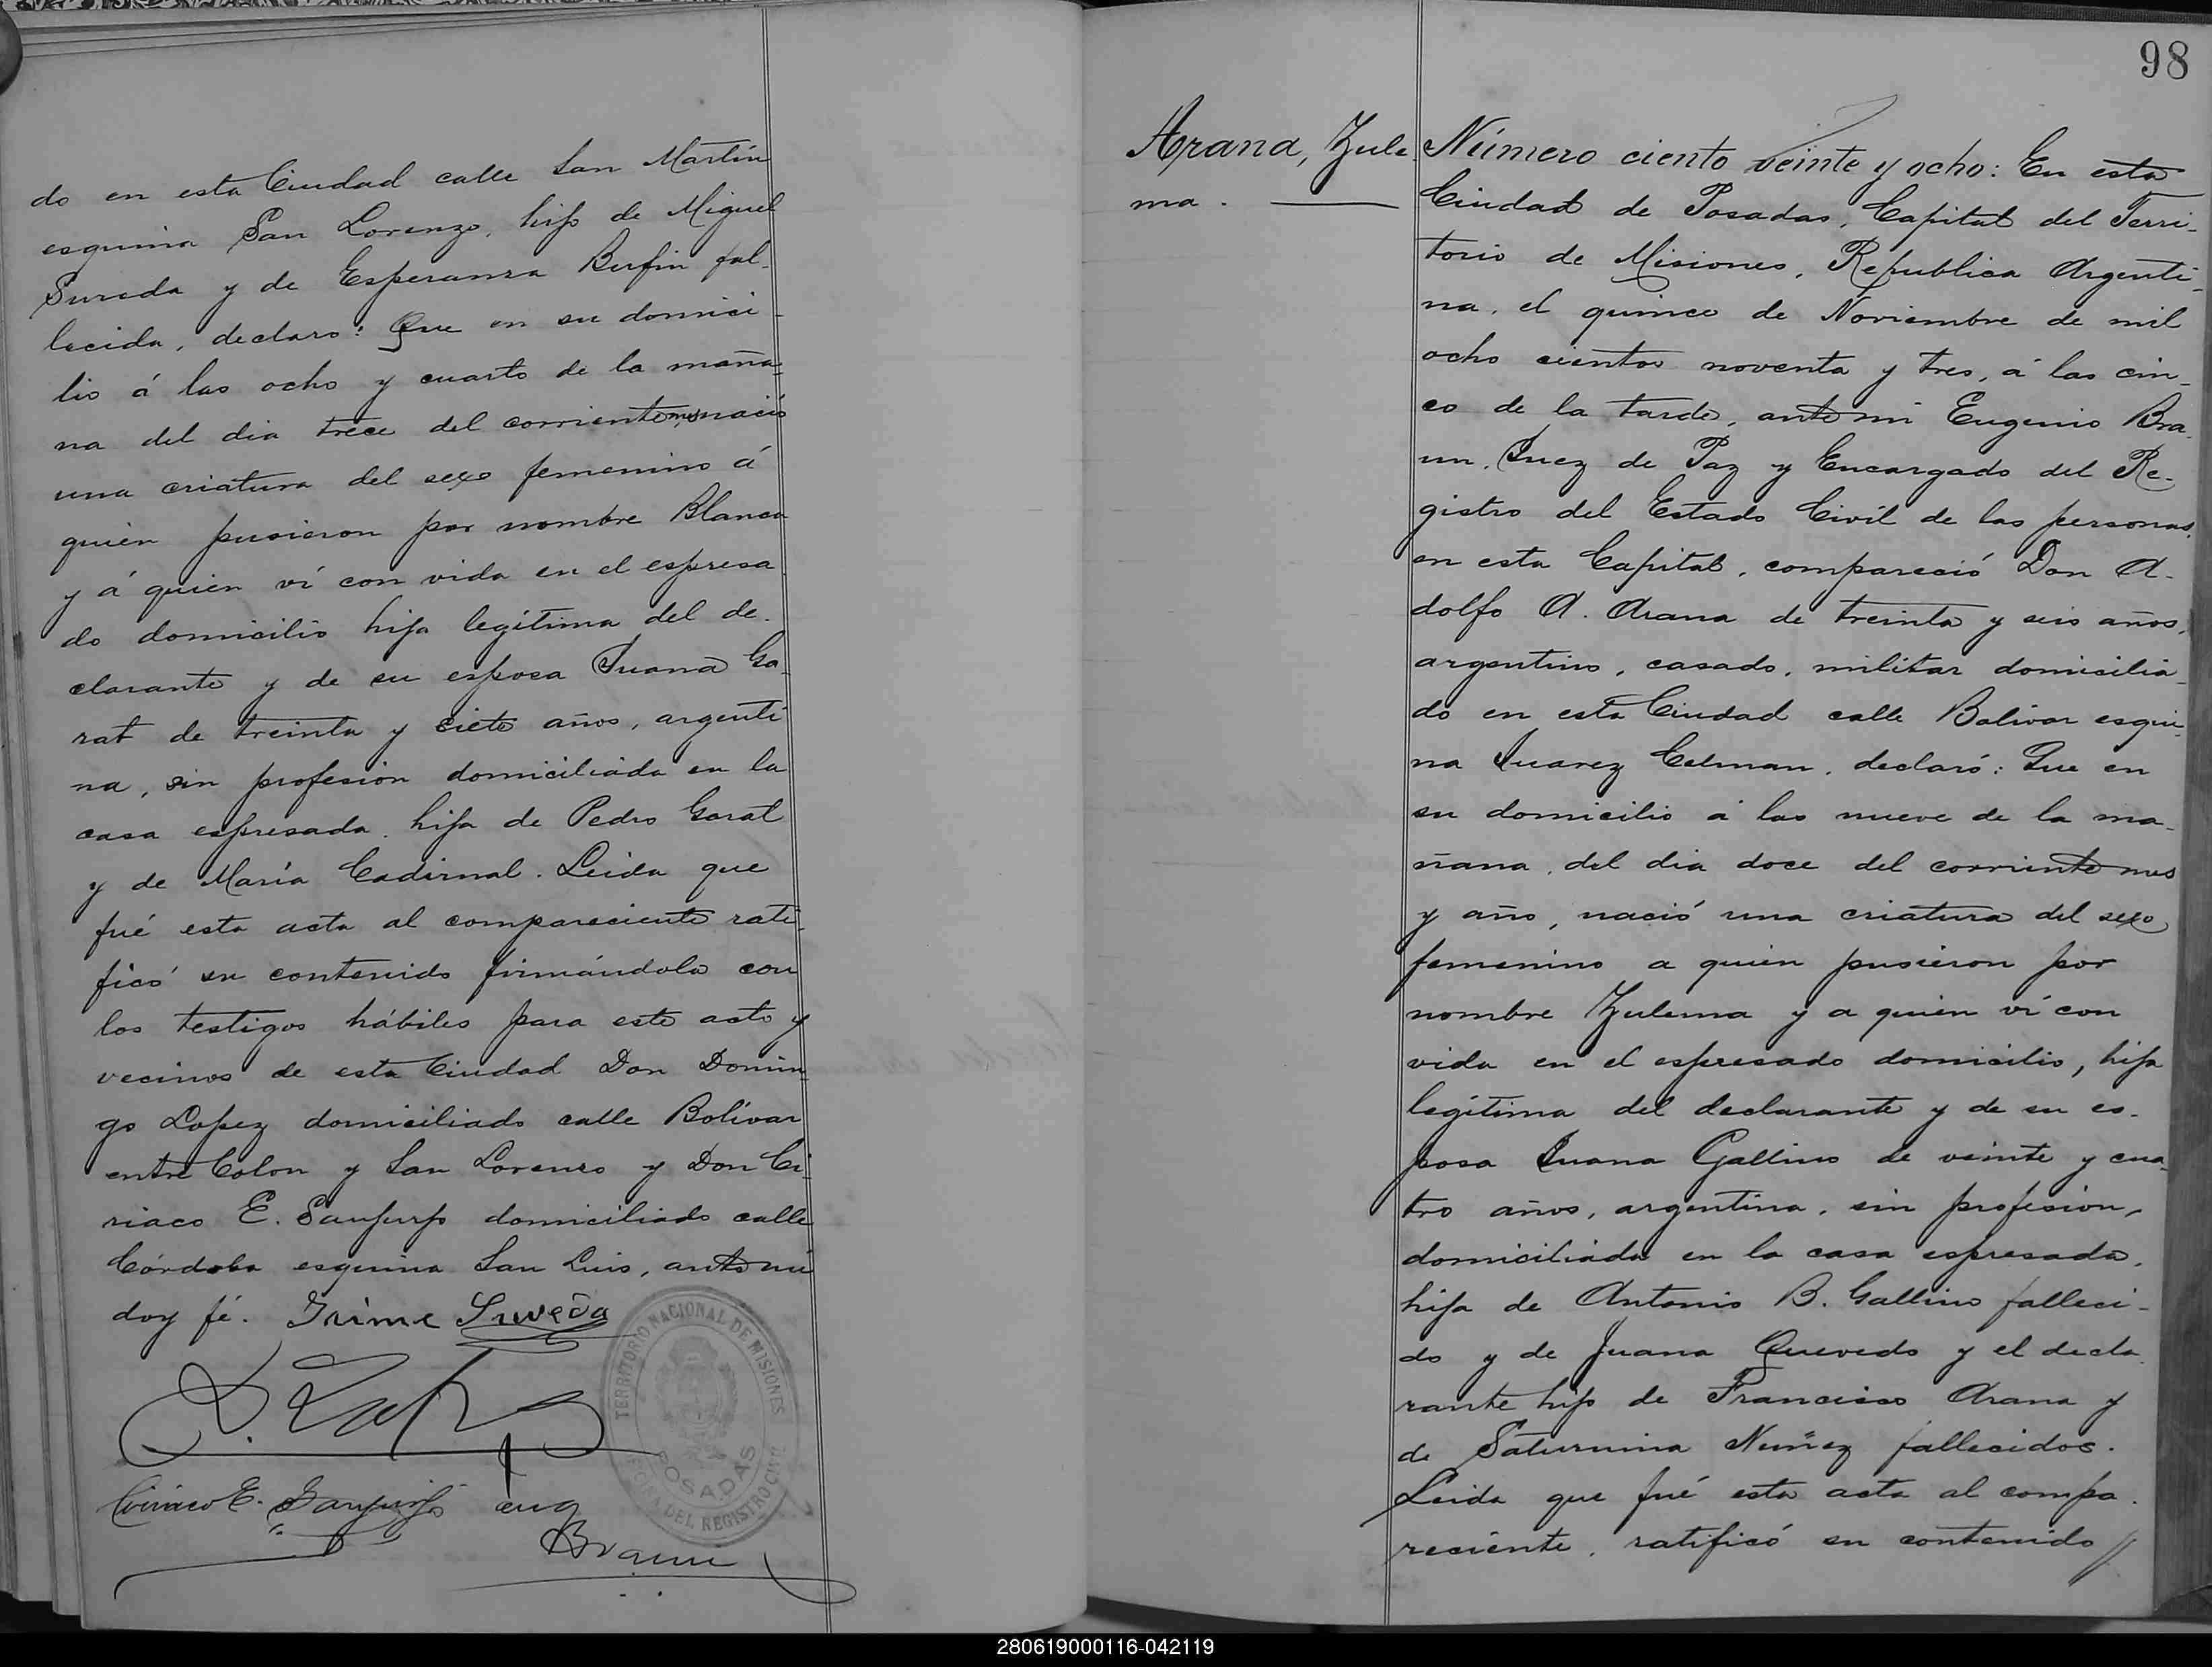 do en esta Ciudad calle San Martin
esquina San Lorenzo, hijo de Miguel
Sureda y de Esperanza Busfin fal-
lecida, declaró: Que en su domici-
lio á las ocho y cuarto de la maña-
na del dia trece del corriente mes, nació
una criatura del sexo femenino á
quien pusieron por nombre Blanca
y á quien ví con vida en el espresa
do domicilio hija legítima del de-
clarante y de su esposa Juana Ga-
rat de treinta y siete años, argenti
na, sin profesión domiciliada en la
casa espresada, hija de Pedro Garat
y de María Cadirnal. Leida que
fué esta acta al compareciente rati-
ficó su contenido firmándola con
los testigos hábiles para este acto y
vecinos de esta Ciudad Don Domin-
go Lopez domiciliado calle Bolívar
entre Colon y San Lorenzo y Don Ci-
riaco E. Sanjurjo domiciliado calle
Córdoba esquina San Luis, ante mí
doy fé. Jaime Sureda
Ciriaco E. Sanjurjo
Eug Braun
TERRITORIO NACIONAL DE MISIONES
POSADAS
OFICINA DEL REGISTRO CIVIL
98
Arana, Zule
ma.
Número ciento veinte y ocho: En esta
Ciudad de Posadas, Capital del Terri-
torio de Misiones, Republica Argenti-
na, el quince de Noviembre de mil
ocho cientos noventa y tres, á las cin-
co de la tarde, ante mi Eugenio Bra-
un, Juez de Paz y Encargado del Re-
gistro del Estado Civíl de las personas,
en esta Capital, compareció Don A-
dolfo A. Arana de treinta y seis años,
argentino, casado, militar domicilia-
do en esta Ciudad calle Bolivar esqui-
na Juarez Celman, declaró: Que en
su domicilio á las nueve de la ma-
ñana, del dia doce del corriente mes
y año, nació una criatura del sexo
femenino a quien pusieron por
nombre Zulema y a quien ví con
vida en el espresado domicilio, hija
legítima del declarante y de su es-
posa Juana Gallino de veinte y cua-
tro años, argentina, sin profesión,
domiciliada en la casa espresada,
hija de Antonio B. Gallino falleci-
do y de Juana Quevedo y el decla
rante hijo de Francisco Arana y
de Saturnina Nuñez fallecidos.
Leida que fué esta acta al compa-
reciente, ratificó su contenido //
280619000116-042119